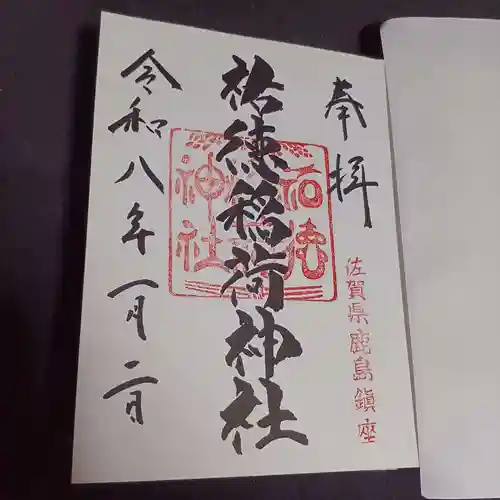 奉拝
佐賀県鹿島鎮座
祐徳稲荷神社
令和八年一月二日